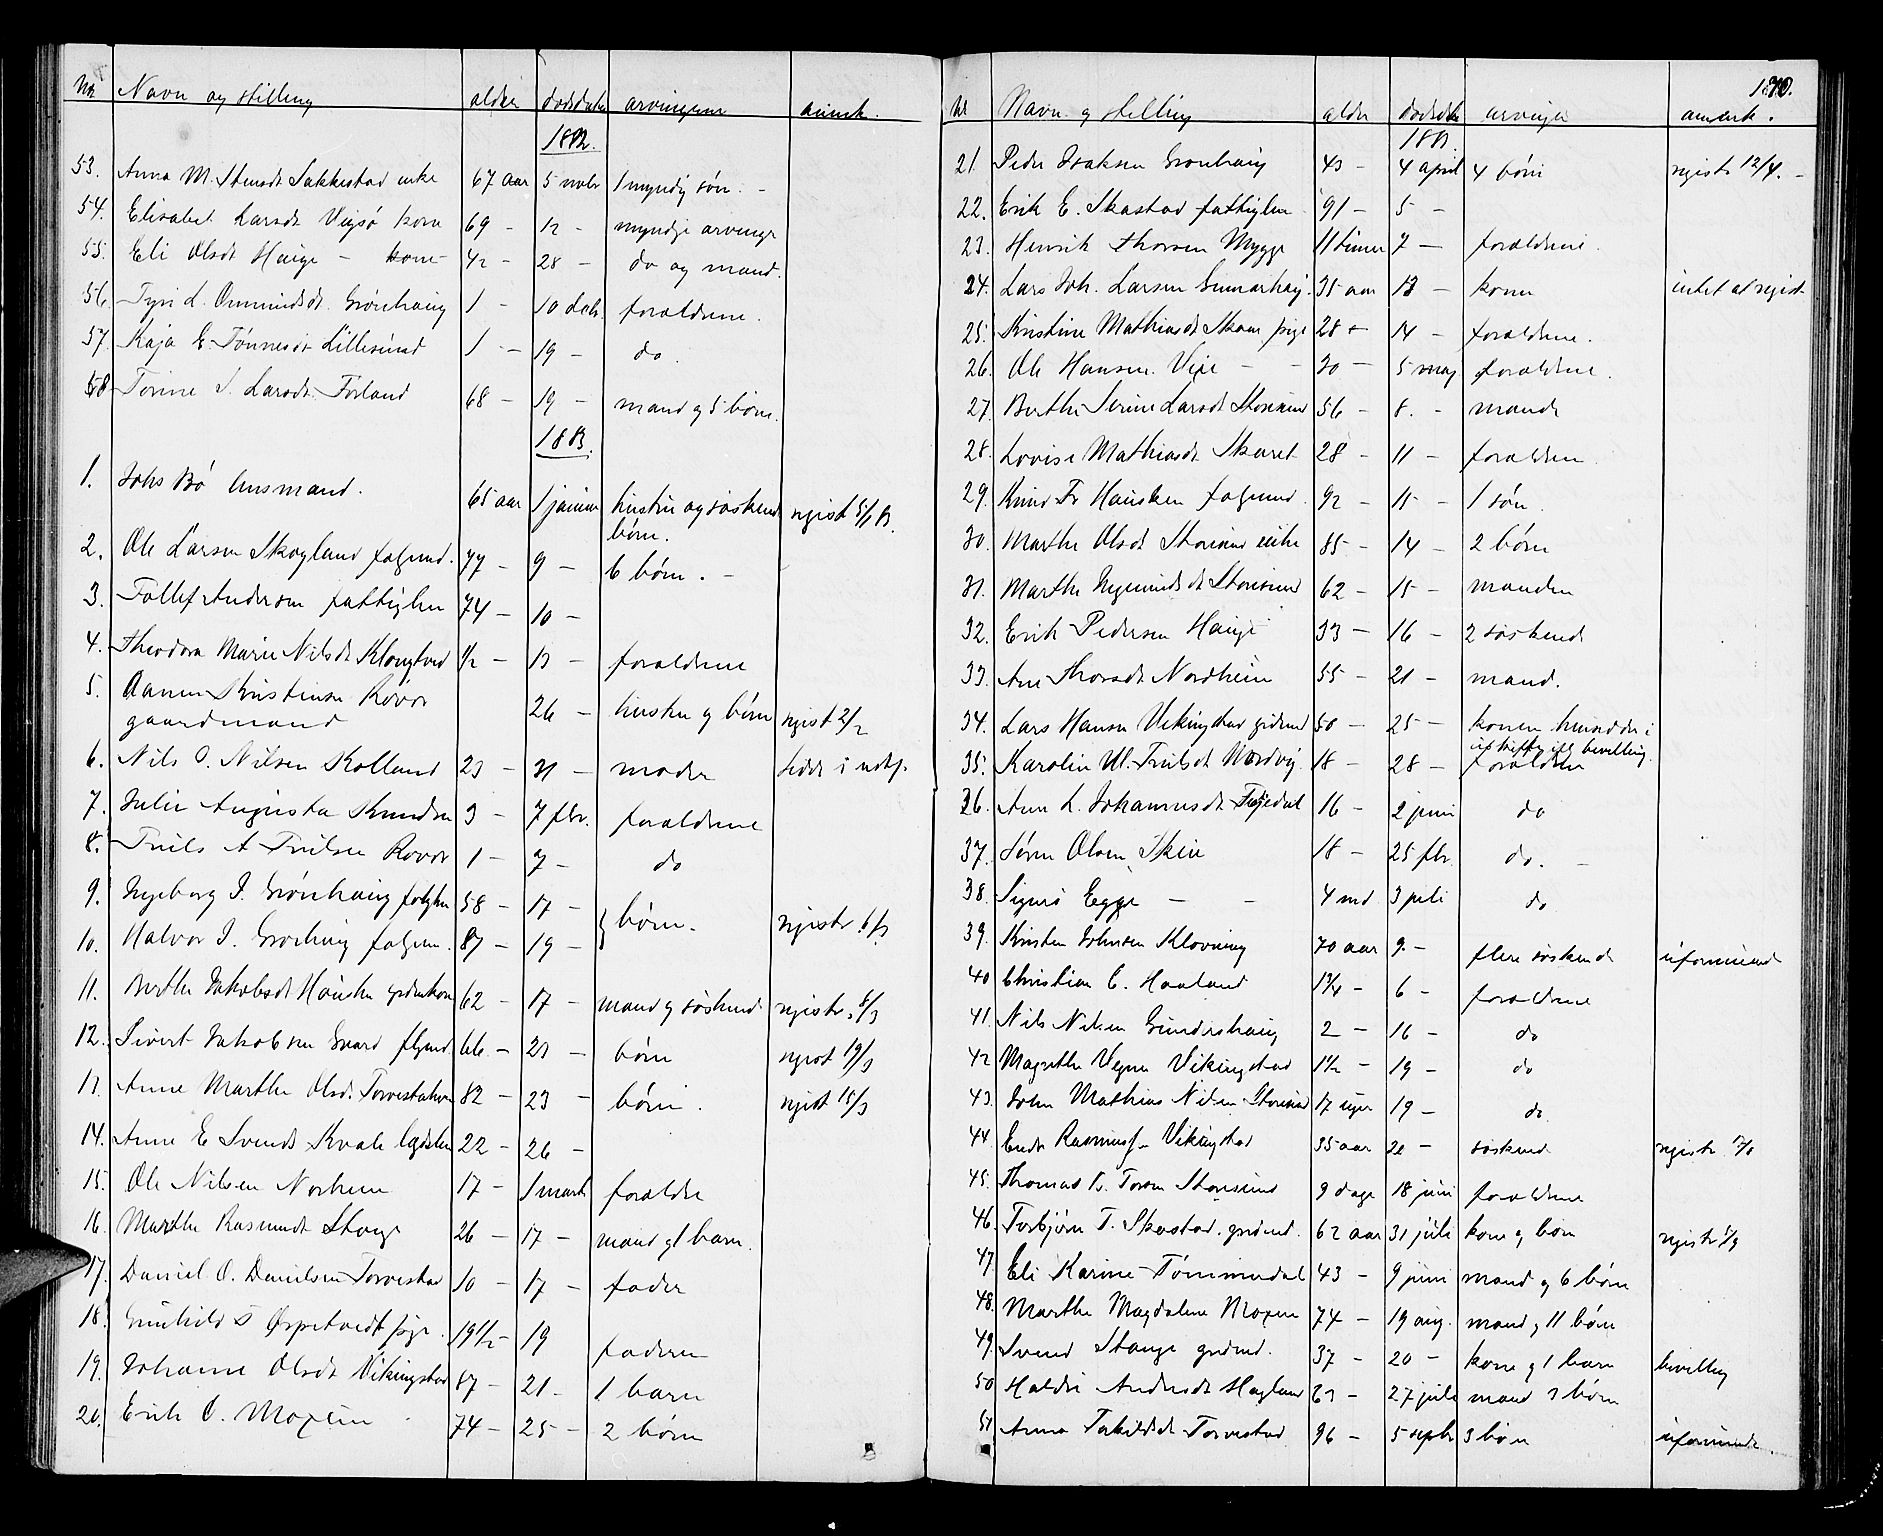 No Navn og stilling alder dødsdato arvingerne anmerk.
1882.
53. Anna M. Stensdt Sakkestad enke 67 aar 5 novbr 1 myndig søn. -
54. Elisabet Larsdt Vigsø kone 69 - 12 - myndige arvinger
55. Eli Olsdt Hauge - kone - 42 - 28 - do og mand.
56. L. Omundsdt. Grønhaug 1 - 10 decbr. forældrene.
57. Kaja E. Tønnesdt Lillesund 1 - 19 - do.
58 Torine S. Larsdt. Førland 68 - 19 - mand og 5 børn.
1883.
1. Johs Bø husmand. 65 aar 1 januar hustru og søskende regist 5/1 83.
børn.
2. Ole Larsen Skogland folgemd. 77 - 9 - 6 børn. -
3. Tollef Andersen fattiglem 74 - 10 -
4. Theodora Marie Nilsdt 1/2 - 13 - forældrene
5. Aanen Kristensen Røvær 26 - hustru og børn regist 2/2
gaardmand
6. Nils O. Nilsen Kolland 23 - 31 - moder
7. Julie Augusta Knudsen 3 - 7 fbr. forældrene
8. Truls A Trulsen Røvær 1 - 7 - do
9. Ingeborg J. Grønhaug 58 - 17 -
børn. registr. 6/3
10. Halvor J. Grønhaug folgem. 87 - 19 -
11. Berthe Jakobsdt Hausken 62 - 17 - mand og søskende registr. 8/3
12. Sivert Jakobsen Gaard 66 - 23 - børn regist 19/3
13. Anne Marthe Olsdt. 82 - 23 - børn. regist 15/3
14. Anne E Svendsdt Kvale 22 - 26 -
15. Ole Nilsen Norheim 17 - 1 marts forældre
16. Marthe Rasmusdt Stange 26 - 17 - mand og 1 barn.
17. Daniel O. Danielsen Torvestad 10 - 17 - fader
18. Gunhild S Ørpetvedt pige. 19 1/2 - 19 faderen
19. Johanne Olsdt Vikingstad 87 - 21 - 1 barn
20. Erik O. 74 - 25 - 2 børn
Nr Navn og stilling alder arvinger anmærk.
1883.
21. Peder Isaksen Grønhaug 43 - 4 april 4 børn registr 12/4. -
22. Erik E. Skastad fattiglem 91 - 5 -
23. Henrik Thorsen Mygge 11 timer 7 - forældrene.
24. Lars Joh. Larsen Gunnarhaug. 35 aar 13 - konen intet at regist.
25. Kristine Mathiasdt Skaar pige 28 - 14 - forældrene.
26. Ole Hansen - - 30 - 5 maj forældrene.
27. Berthe Serine Larsdt Storesund 56 - 8. - manden
28. Lovise Mathiasdt Skaret 28 - 11 - forældrene
29. Knud Fr Hausken folgemd. 92 - 15 - 1 søn.
30. Marthe Olsdt Storesund enke 85 - 14 - 2 børn
31. Marthe Ingemundsdt Storesund 62 - 15 - manden
32. Erik Pedersen Hauge 33 - 16 - 2 søskende
33. Ane Thorsdt Nordheim 55 - 21 - mand.
34. Lars Hansen Vikingstad 50 - 25 - konen hensidder i
uskiftet ifl bevilling.
35. Karolin M. Trulsdt 18 - 28 - forældrene
36. Ane L. Johannesdt 16 - 2 juni do
37. Søren Olsen Skeie 18 - 25 fbr. do. -
38. Egge - - 4 md 3 juli do
39. Kristen Johnsen Klovning 70 aar 9. - flere søskende uformuende
40 Christian C. Haaland 1 3/4 - 6 - forældrene
41. Nils Nilsen Gundershaug 2 - 16 - do
42 Magrethe Vikingstad 1 1/2 - 19 - do
43. John Mathias Nilsen Storesund 17 uger 19 - do
44. Endre Rasmuss. Vikingstad 35 aar 20 - søskende registr.
45. Thomas Storesund 9 dage 18 juni forældrene
46. Torbjørn T. Skastad. grdmd. 62 aar 31 juli kone og børn registr 1/9
47. Eli Karine Tømmerdal 43 - 9 juni mand og 6 børn
48. Marthe Magdalene 74 - 19 aug. mand og 11 børn
49. Svend Stange grdmd. 37 - 20 - kone og 1 barn bevilling
50 Andersdt Hagland 63 - 27 juli mand 3 børn
51 Anna Torkildsdt Torvestad 96 - 5 septbr 3 børn uformuende.